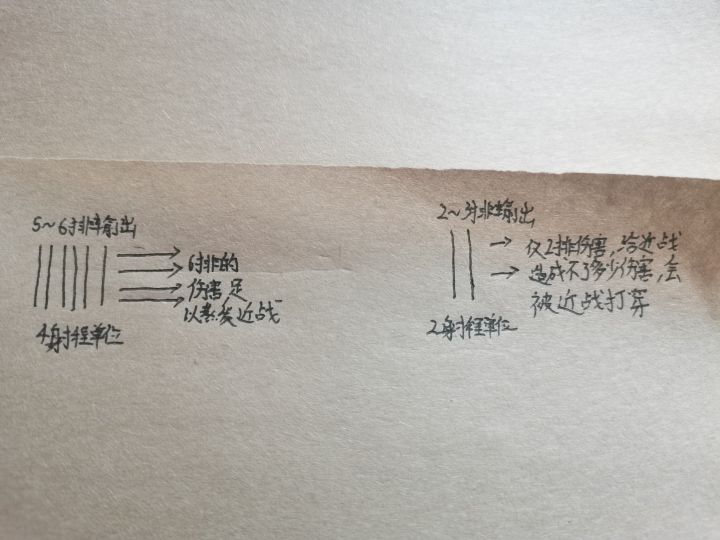 5~6排输出
6排的
伤害足
以蒸发近战
4射程单位
2~3排输出
仅2排伤害,给近战
造成不了多少伤害,会
被近战打穿
2射程单位